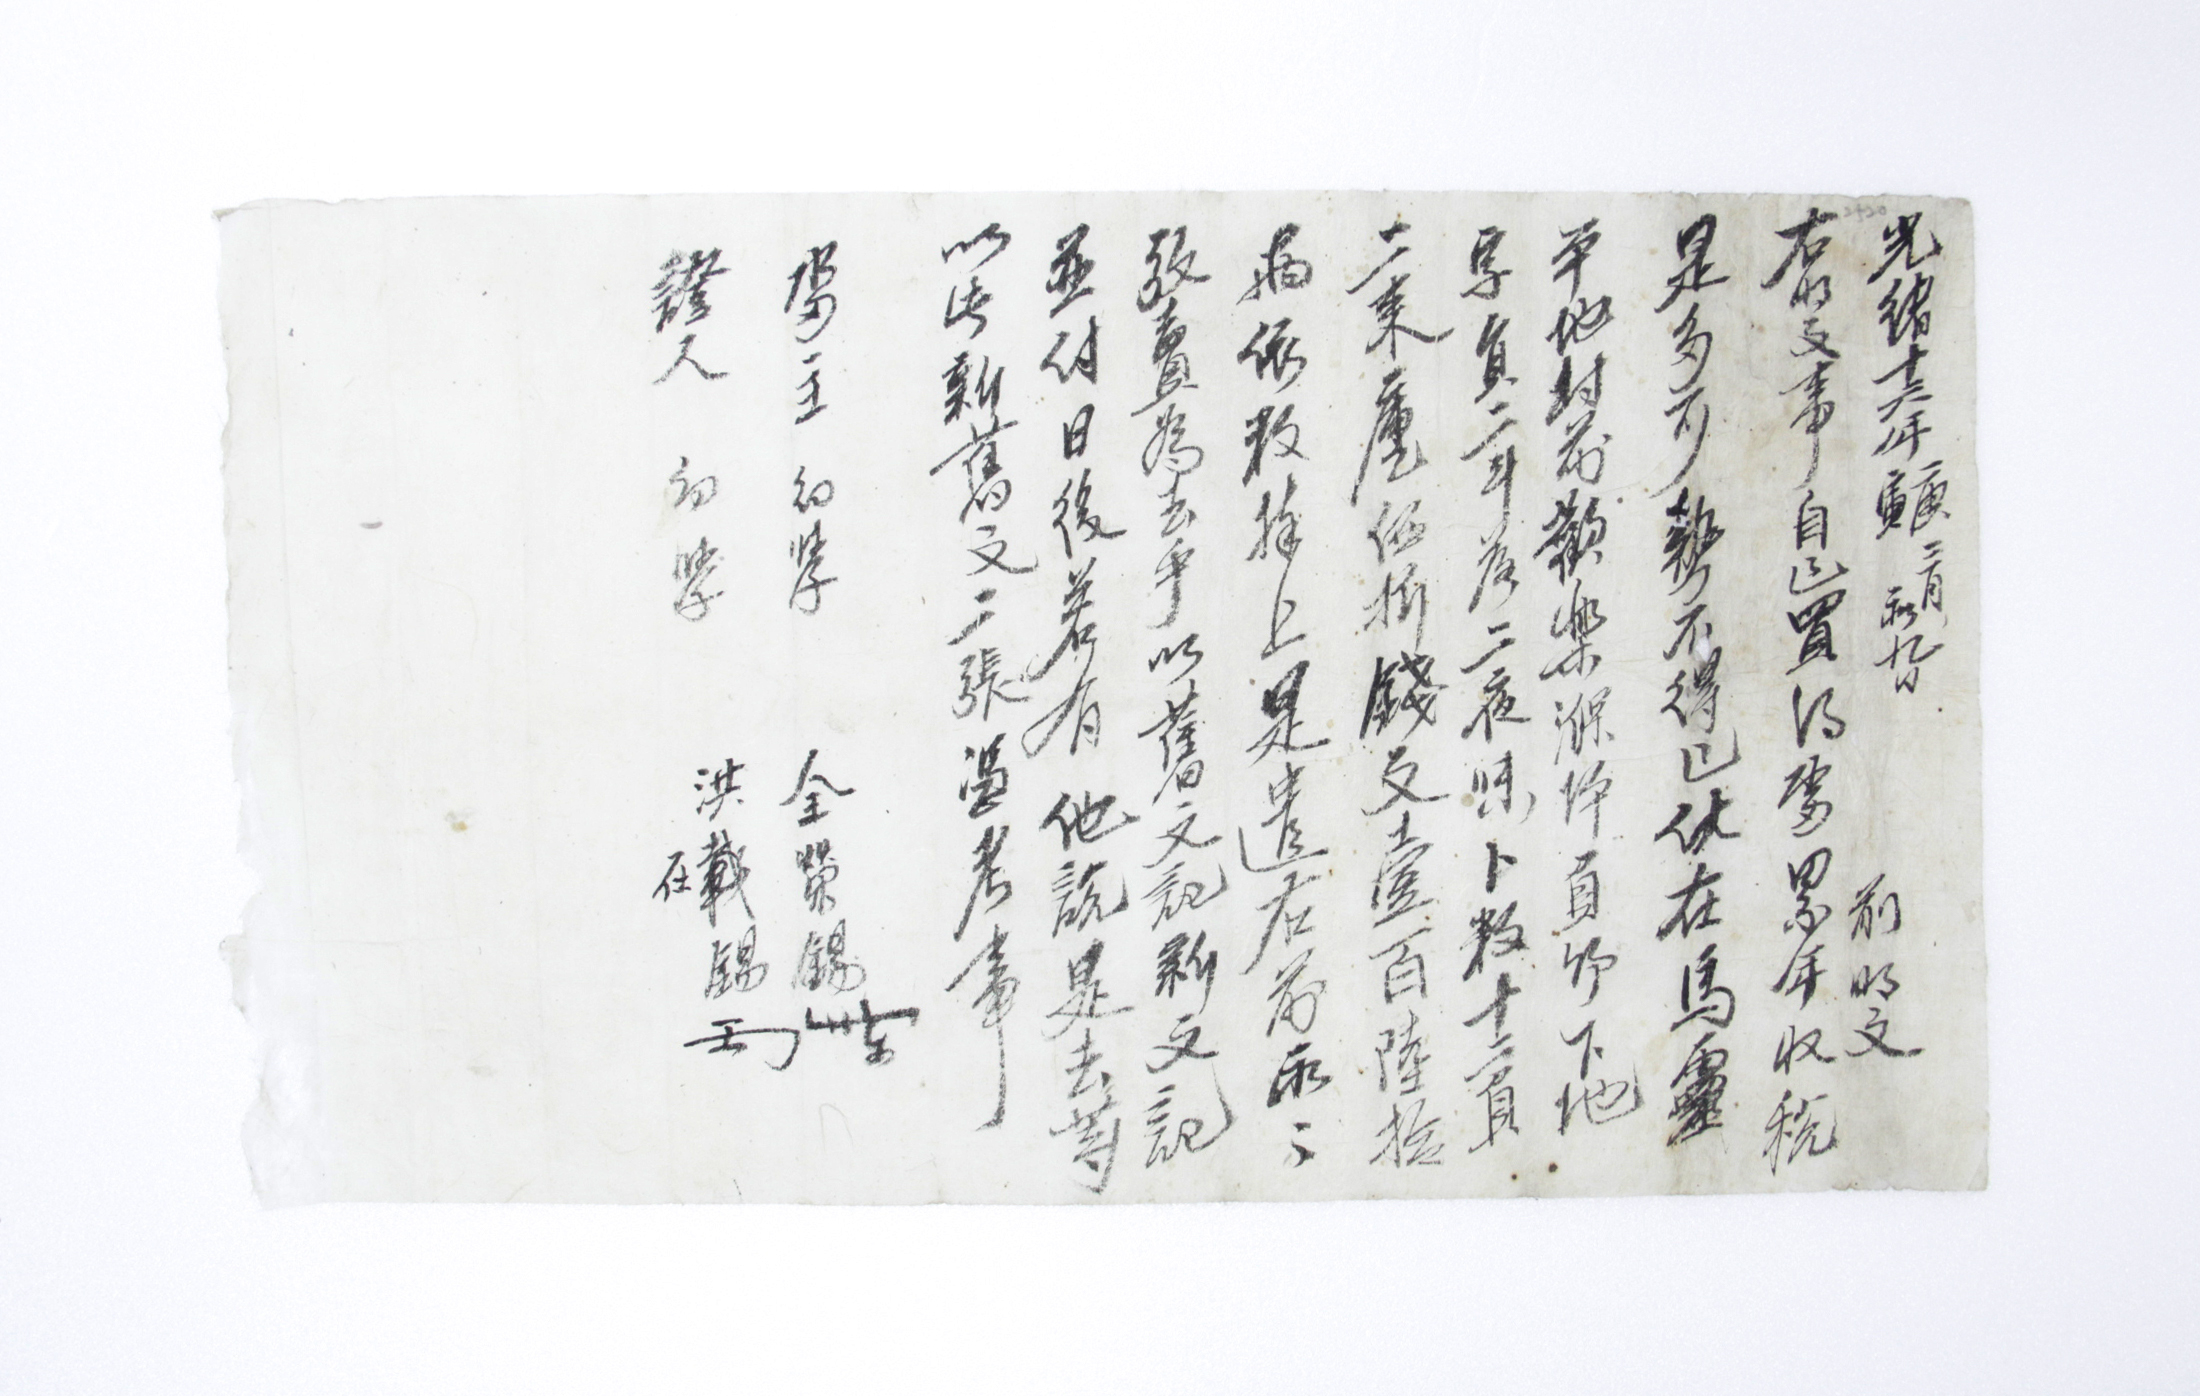 光緒十六年庚寅二月初九日 前明文
右明文事自己買得畓累年收稅
是多可勢不得已伏在馬靈
平地村前歡樂㵛伏員字下地
字負二斗落二夜味卜數十二負
二束廛伍拐錢文壹百陸拾
兩依數捧上是遣右前宅
放賣爲去乎以舊文記新文記
並付日後若有他說是去等
以此新舊文二張憑考事
畓主 幼學 全榮錫
證人 幼學 洪載錫